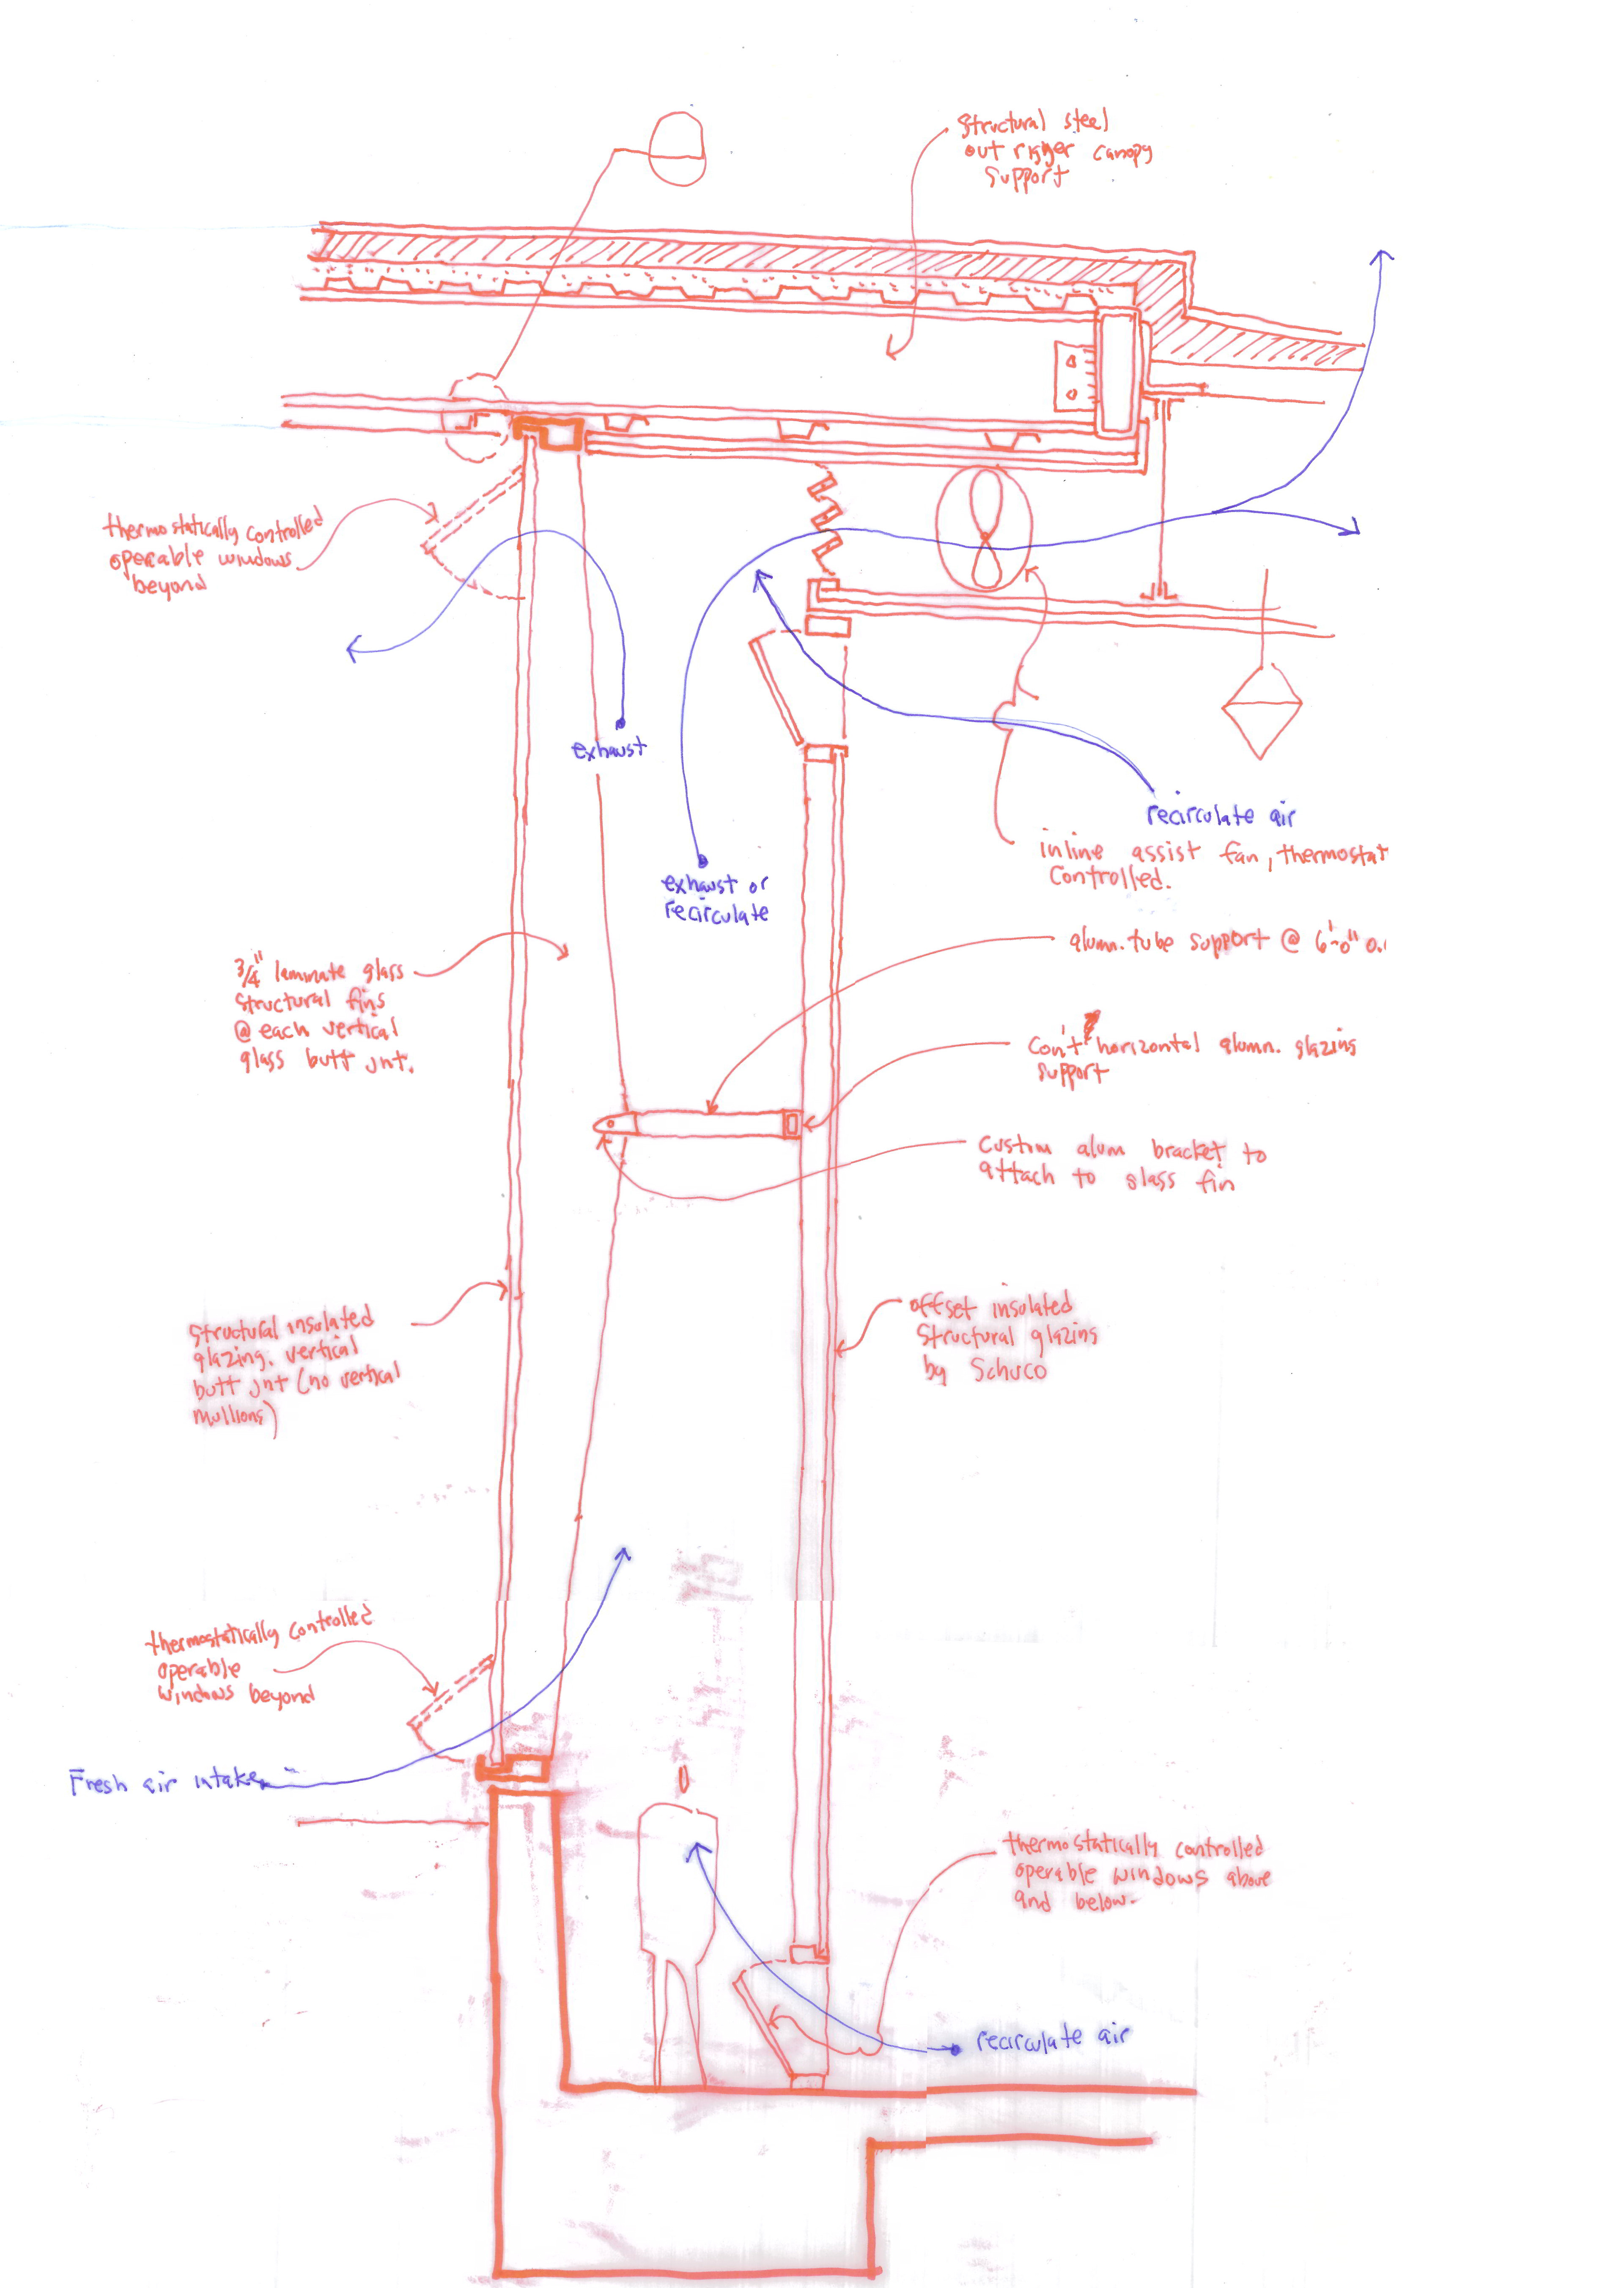 structural steel
out rigger canopy
support
thermostatically controlled
operable windows
beyond
exhaust
recirculate air
inline assist fan, thermostat
controlled.
exhaust or
recirculate
alumn. tube support @ 6'-0" o.
3/4" laminate glass
structural fins
@ each vertical
glass butt jnt.
con't horizontal alumn. glazing
support
custom alum bracket to
attach to glass fin
structural insulated
glazing. vertical
butt jnt (no vertical
mullions)
offset insulated
structural glazing
by Schuco
thermostatically controlled
operable
windows beyond
Fresh air intake
thermostatically controlled
operable windows above
and below.
recirculate air